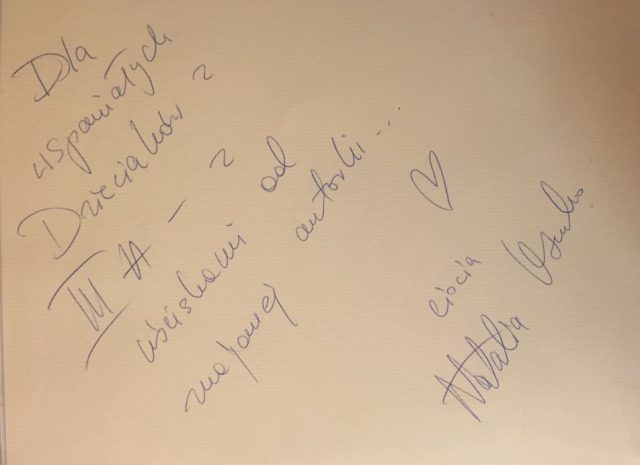 Dla
wspaniałych
Dzieciaków z
III A - z
uściskami od
znajomej autorki...
♡
ciocia
Natalia